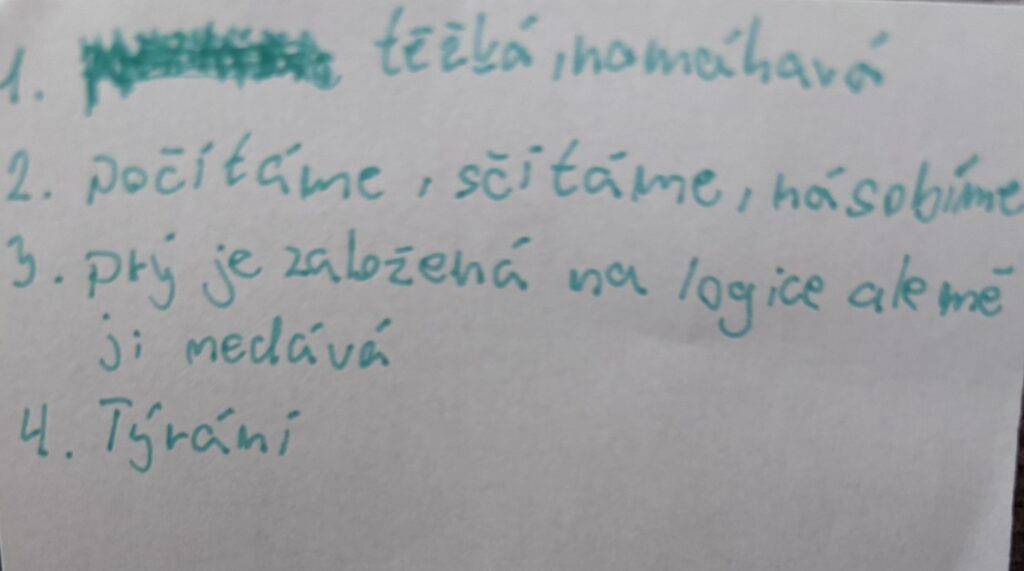 1. těžká, namáhavá
2. počítáme, sčítáme, násobíme
3. prý je založená na logice ale mě
ji nedává
4. Týrání